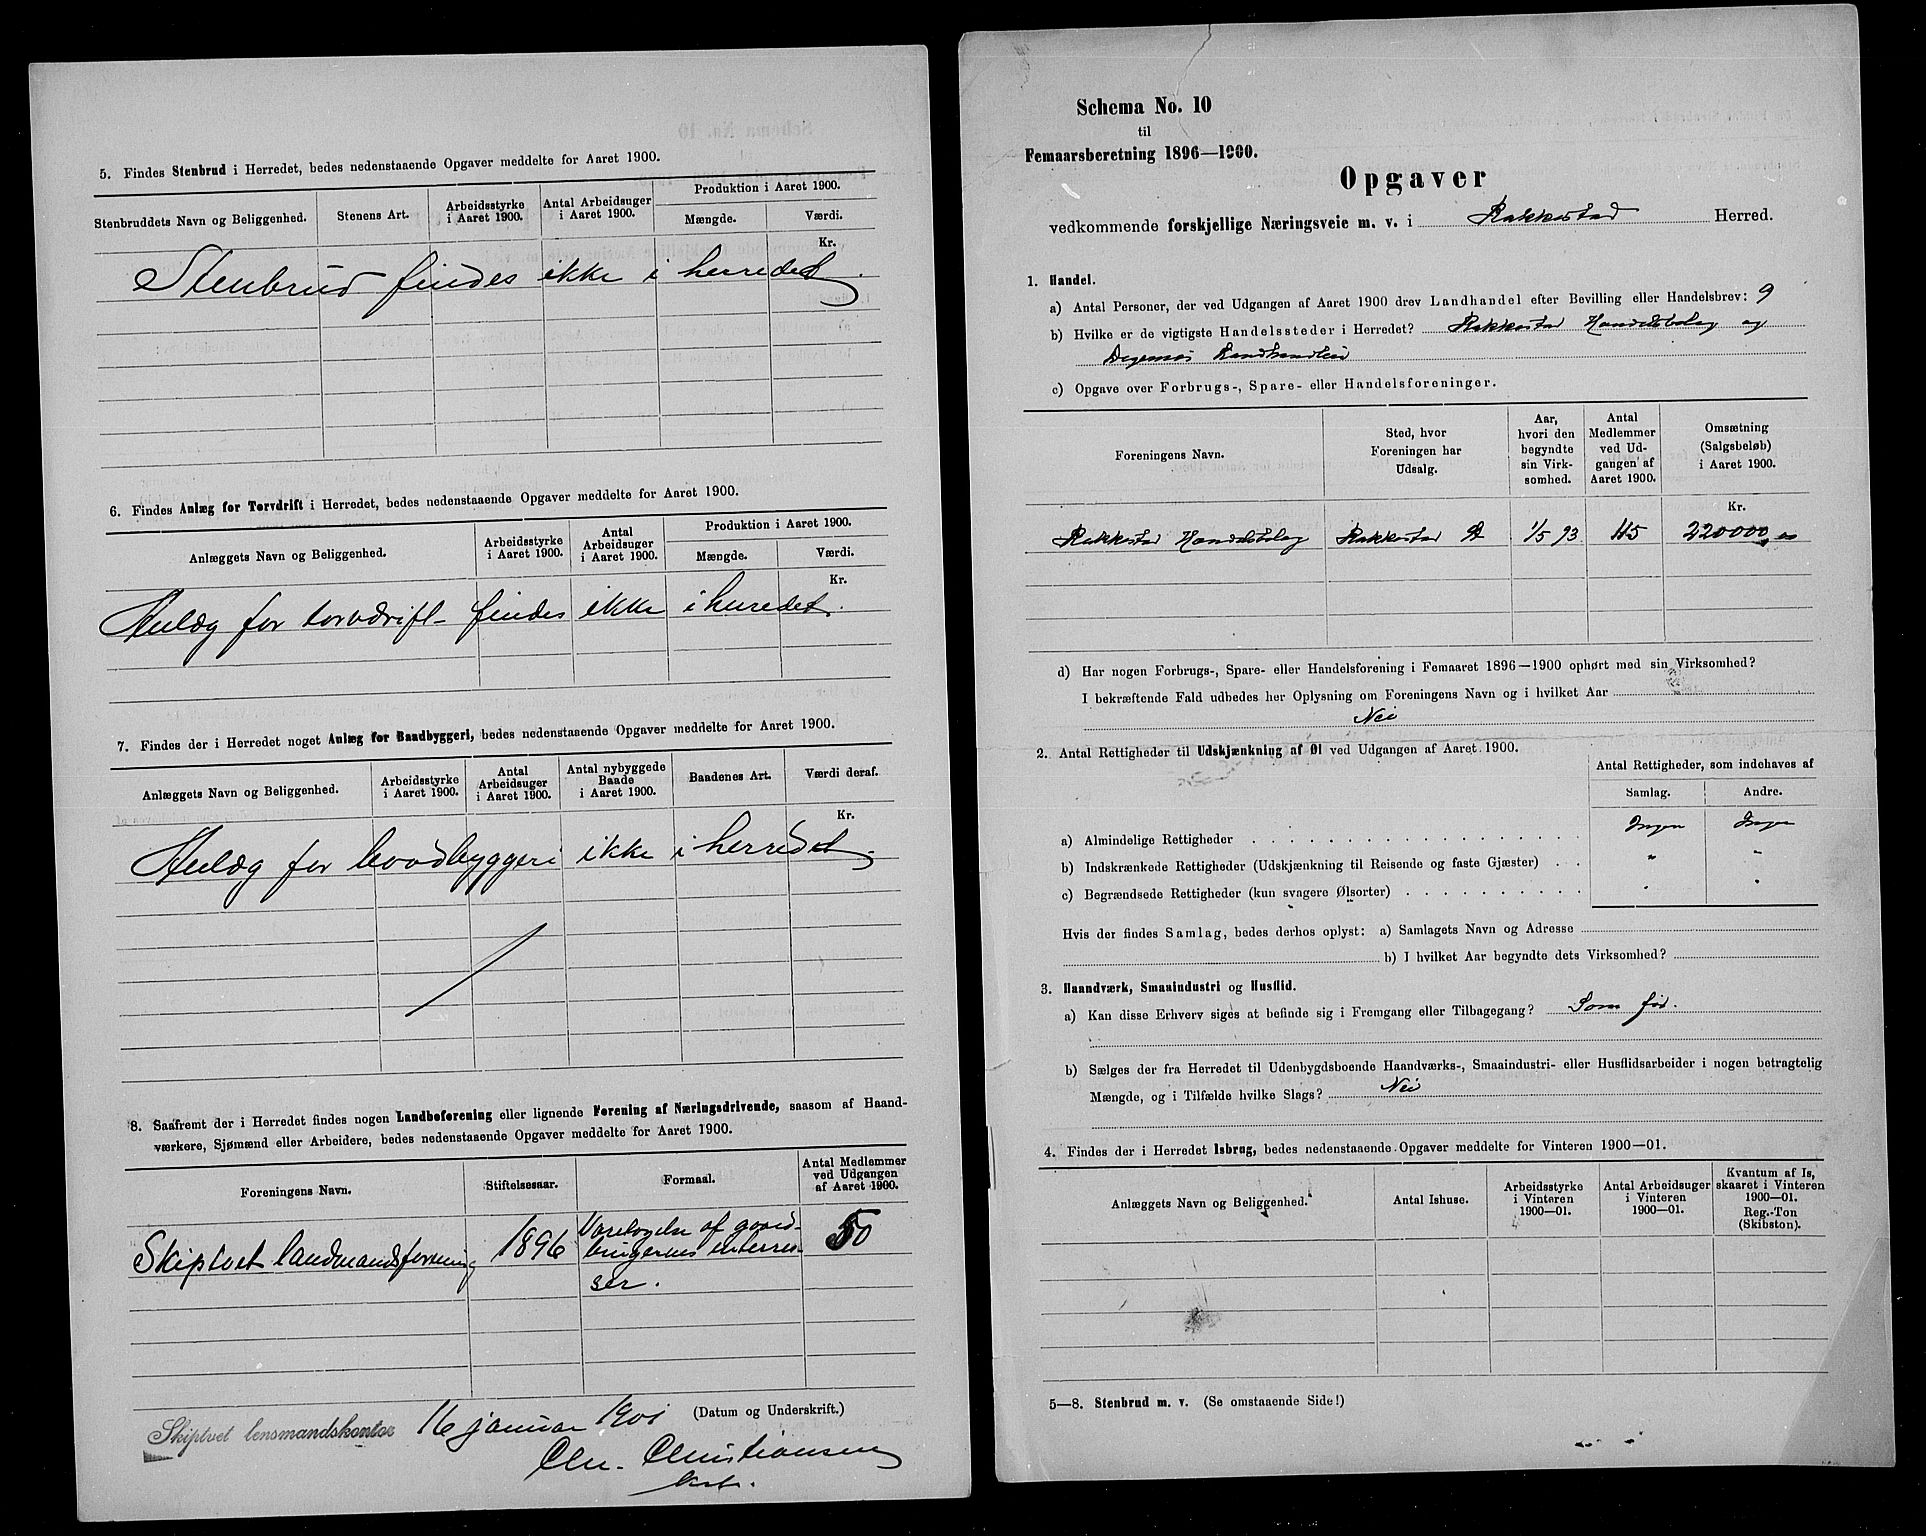 5. Findes Stenbrud i Herredet, bedes nedenstaaende Opgaver meddelte for Aaret 1900.
Stenbruddets Navn og Beliggenhed. Stenens Art. Arbeidsstyrke i Aaret 1900. Antal Arbeidsuger i Aaret 1900. Produktion i Aaret 1900. Mængde. Værdi.
Kr.
Stenbrud findes ikke i herredet.
6. Findes Anlæg for Torvdrift i Herredet, bedes nedenstaaende Opgaver meddelte for Aaret 1900.
Anlæggets Navn og Beliggenhed. Arbeidsstyrke i Aaret 1900. Antal Arbeidsuger i Aaret 1900. Produktion i Aaret 1900. Mængde. Værdi.
Kr.
Anlæg for torvdrift findes ikke i herredet.
7. Findes der i Herredet noget Anlæg for Baadbyggeri, bedes nedenstaaende Opgaver meddelte for Aaret 1900.
Anlæggets Navn og Beliggenhed. Arbeidsstyrke i Aaret 1900. Antal Arbeidsuger i Aaret 1900. Antal nybyggede Baade i Aaret 1900. Baadenes Art. Værdi deraf.
Kr.
Anlæg for baadbyggeri ikke i herredet.
8. Saafremt der i Herredet findes nogen Landboforening eller lignende Forening af Næringsdrivende, saasom af Haand-
værkere, Sjømænd eller Arbeidere, bedes nedenstaaende Opgaver meddelte for Aaret 1900.
Foreningens Navn. Stiftelsesaar. Formaal. Antal Medlemmer ved Udgangen af Aaret 1900.
Skiptvet landmandsforening 1896 Varetagelse af gaard-
brugernes interres-
ser. 50
Skiptvet lensmandskontor 16 januar 1901 (Datum og Underskrift.)
Chr. Christiansen
Schema No. 10
til
Femaarsberetning 1896—1900.
Opgaver
vedkommende forskjellige Næringsveie m. v. i Rakkestad Herred.
1. Handel.
a) Antal Personer, der ved Udgangen af Aaret 1900 drev Landhandel efter Bevilling eller Handelsbrev: 9
b) Hvilke er de vigtigste Handelssteder i Herredet? Rakkestad Handelsbolag og
Degernes Landhandleri
c) Opgave over Forbrugs-, Spare- eller Handelsforeninger.
Foreningens Navn. Sted, hvor Foreningen har Udsalg. Aar, hvori den begyndte sin Virk- somhed. Antal Medlemmer ved Ud- gangen af Aaret 1900. Omsætning (Salgsbeløb) i Aaret 1900.
Kr.
Rakkestad Handelsbolag Rakkestad St 1/5 93 115 220000,00
d) Har nogen Forbrugs-, Spare- eller Handelsforening i Femaaret 1896—1900 ophørt med sin Virksomhed?
I bekræftende Fald udbedes her Oplysning om Foreningens Navn og i hvilket Aar
Nei
2. Antal Rettigheder til Udskjænkning af Øl ved Udgangen af Aaret 1900.
Antal Rettigheder, som indehaves af
Samlag. Andre.
a) Almindelige Rettigheder Ingen Ingen
b) Indskrænkede Rettigheder (Udskjænkning til Reisende og faste Gjæster) " "
c) Begrændsede Rettigheder (kun svagere Ølsorter) " "
Hvis der findes Samlag, bedes derhos oplyst: a) Samlagets Navn og Adresse
b) I hvilket Aar begyndte dets Virksomhed?
3. Haandværk, Smaaindustri og Husflid.
a) Kan disse Erhverv siges at befinde sig i Fremgang eller Tilbagegang? Som før.
b) Sælges der fra Herredet til Udenbygdsboende Haandværks-, Smaaindustri- eller Husflidsarbeider i nogen betragtelig
Mængde, og i Tilfælde hvilke Slags? Nei
4. Findes der i Herredet Isbrug, bedes nedenstaaende Opgaver meddelte for Vinteren 1900—01.
Anlæggets Navn og Beliggenhed. Antal Ishuse. Arbeidsstyrke i Vinteren 1900—01. Antal Arbeidsuger i Vinteren 1900—01. Kvantum af Is, skaaret i Vinteren 1900—01. Reg.-Ton (Skibston).
5—8. Stenbrud m. v. (Se omstaaende Side!)